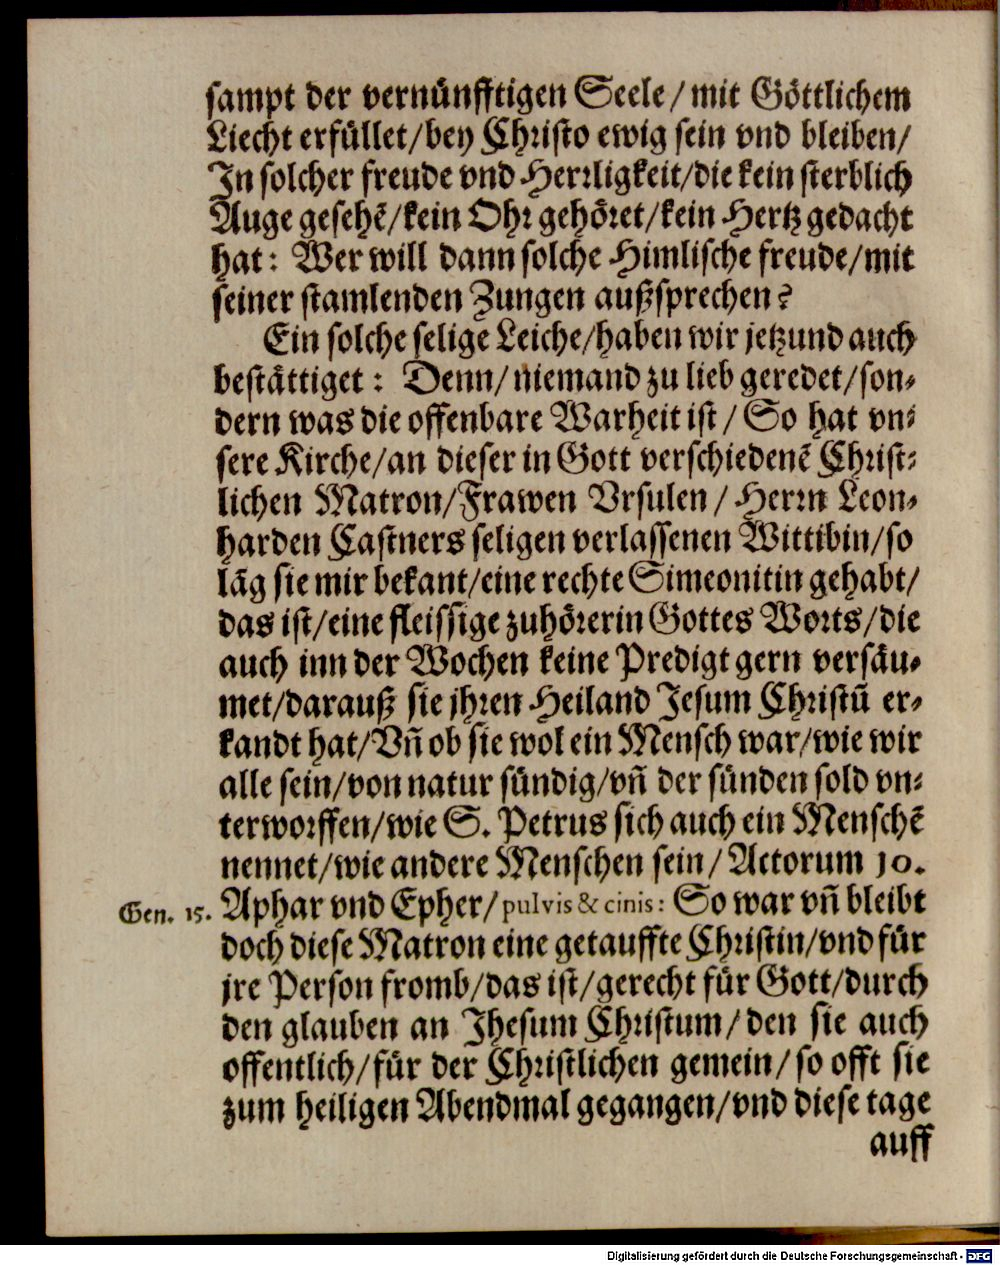 sampt der vernünfftigen Seele/ mit Göttlichem
Liecht erfüllet/bey Christo ewig sein vnd bleiben/
In solcher freude vnd Herrligkeit/die kein sterblich
Auge gesehẽ/kein Ohr gehöret/kein Hertz gedacht
hat: Wer will dann solche Himlische freude/mit
seiner stamlenden Zungen außsprechen?
Ein solche selige Leiche/haben wir jetzund auch
bestättiget: Denn/niemand zu lieb geredet/son-
dern was die offenbare Warheit ist/ So hat vn-
sere Kirche/an dieser in Gott verschiedenẽ Christ-
lichen Matron/Frawen Vrsulen/ Herrn Leon-
harden Castners seligen verlassenen Wittibin/so
lãg sie mir bekant/eine rechte Simeonitin gehabt/
das ist/eine fleissige zuhörerin Gottes Worts/die
auch inn der Wochen keine Predigt gern versäu-
met/darauß sie jhren Heiland Jesum Christũ er-
kandt hat/Vñ ob sie wol ein Mensch war/wie wir
alle sein/von natur sündig/vñ der sünden sold vn-
terworffen/wie S. Petrus sich auch ein Menschẽ
nennet/wie andere Menschen sein/ Actorum 10.
Gen. 15. Aphar vnd Epher/pulvis & cinis: So war vñ bleibt
doch diese Matron eine getauffte Christin/vnd für
jre Person fromb/das ist/gerecht für Gott/durch
den glauben an Jhesum Christum/ den sie auch
offentlich/für der Christlichen gemein/ so offt sie
zum heiligen Abendmal gegangen/vnd diese tage
auff
Digitalisierung gefördert durch die Deutsche Forschungsgemeinschaft - DFG